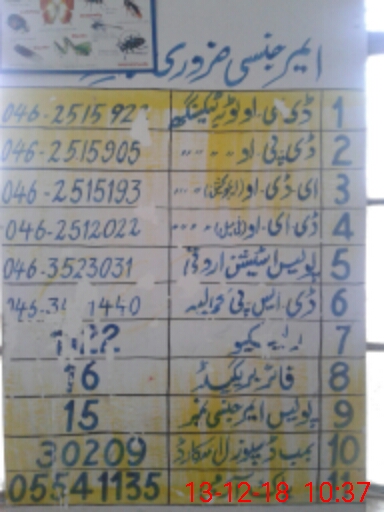 ایمرجنسی ضروری
1 ڈی سی او ٹوبہ ٹیک سنگھ 046-2515922
2 ڈی پی او 〃 〃 〃 046-2515905
3 ای ڈی او (ایجوکیشن) 〃 〃 046-2515193
4 ڈی ای او 〃 〃 〃 046-2512022
5 پولیس اسٹیشن اروتی 046-3523031
6 ڈی ایس پی کمالیہ 1440
7 ریسکیو
8 فائر بریگیڈ 16
9 پولیس ایمرجنسی نمبر 15
10 بمب ڈسپوزل اسکارڈ 30209
11 05541135
13-12-18 10:37